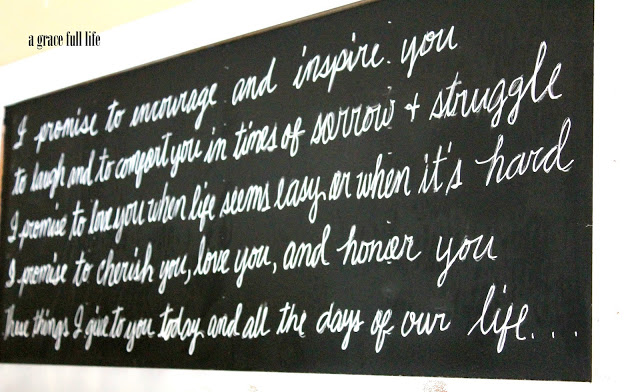 a grace full life
I promise to encourage and inspire you
to laugh and to comfort you in times of sorrow + struggle
I promise to love you when life seems easy or when it's hard
I promise to cherish you, love you, and honor you
These things I give to you today and all the days of our life....